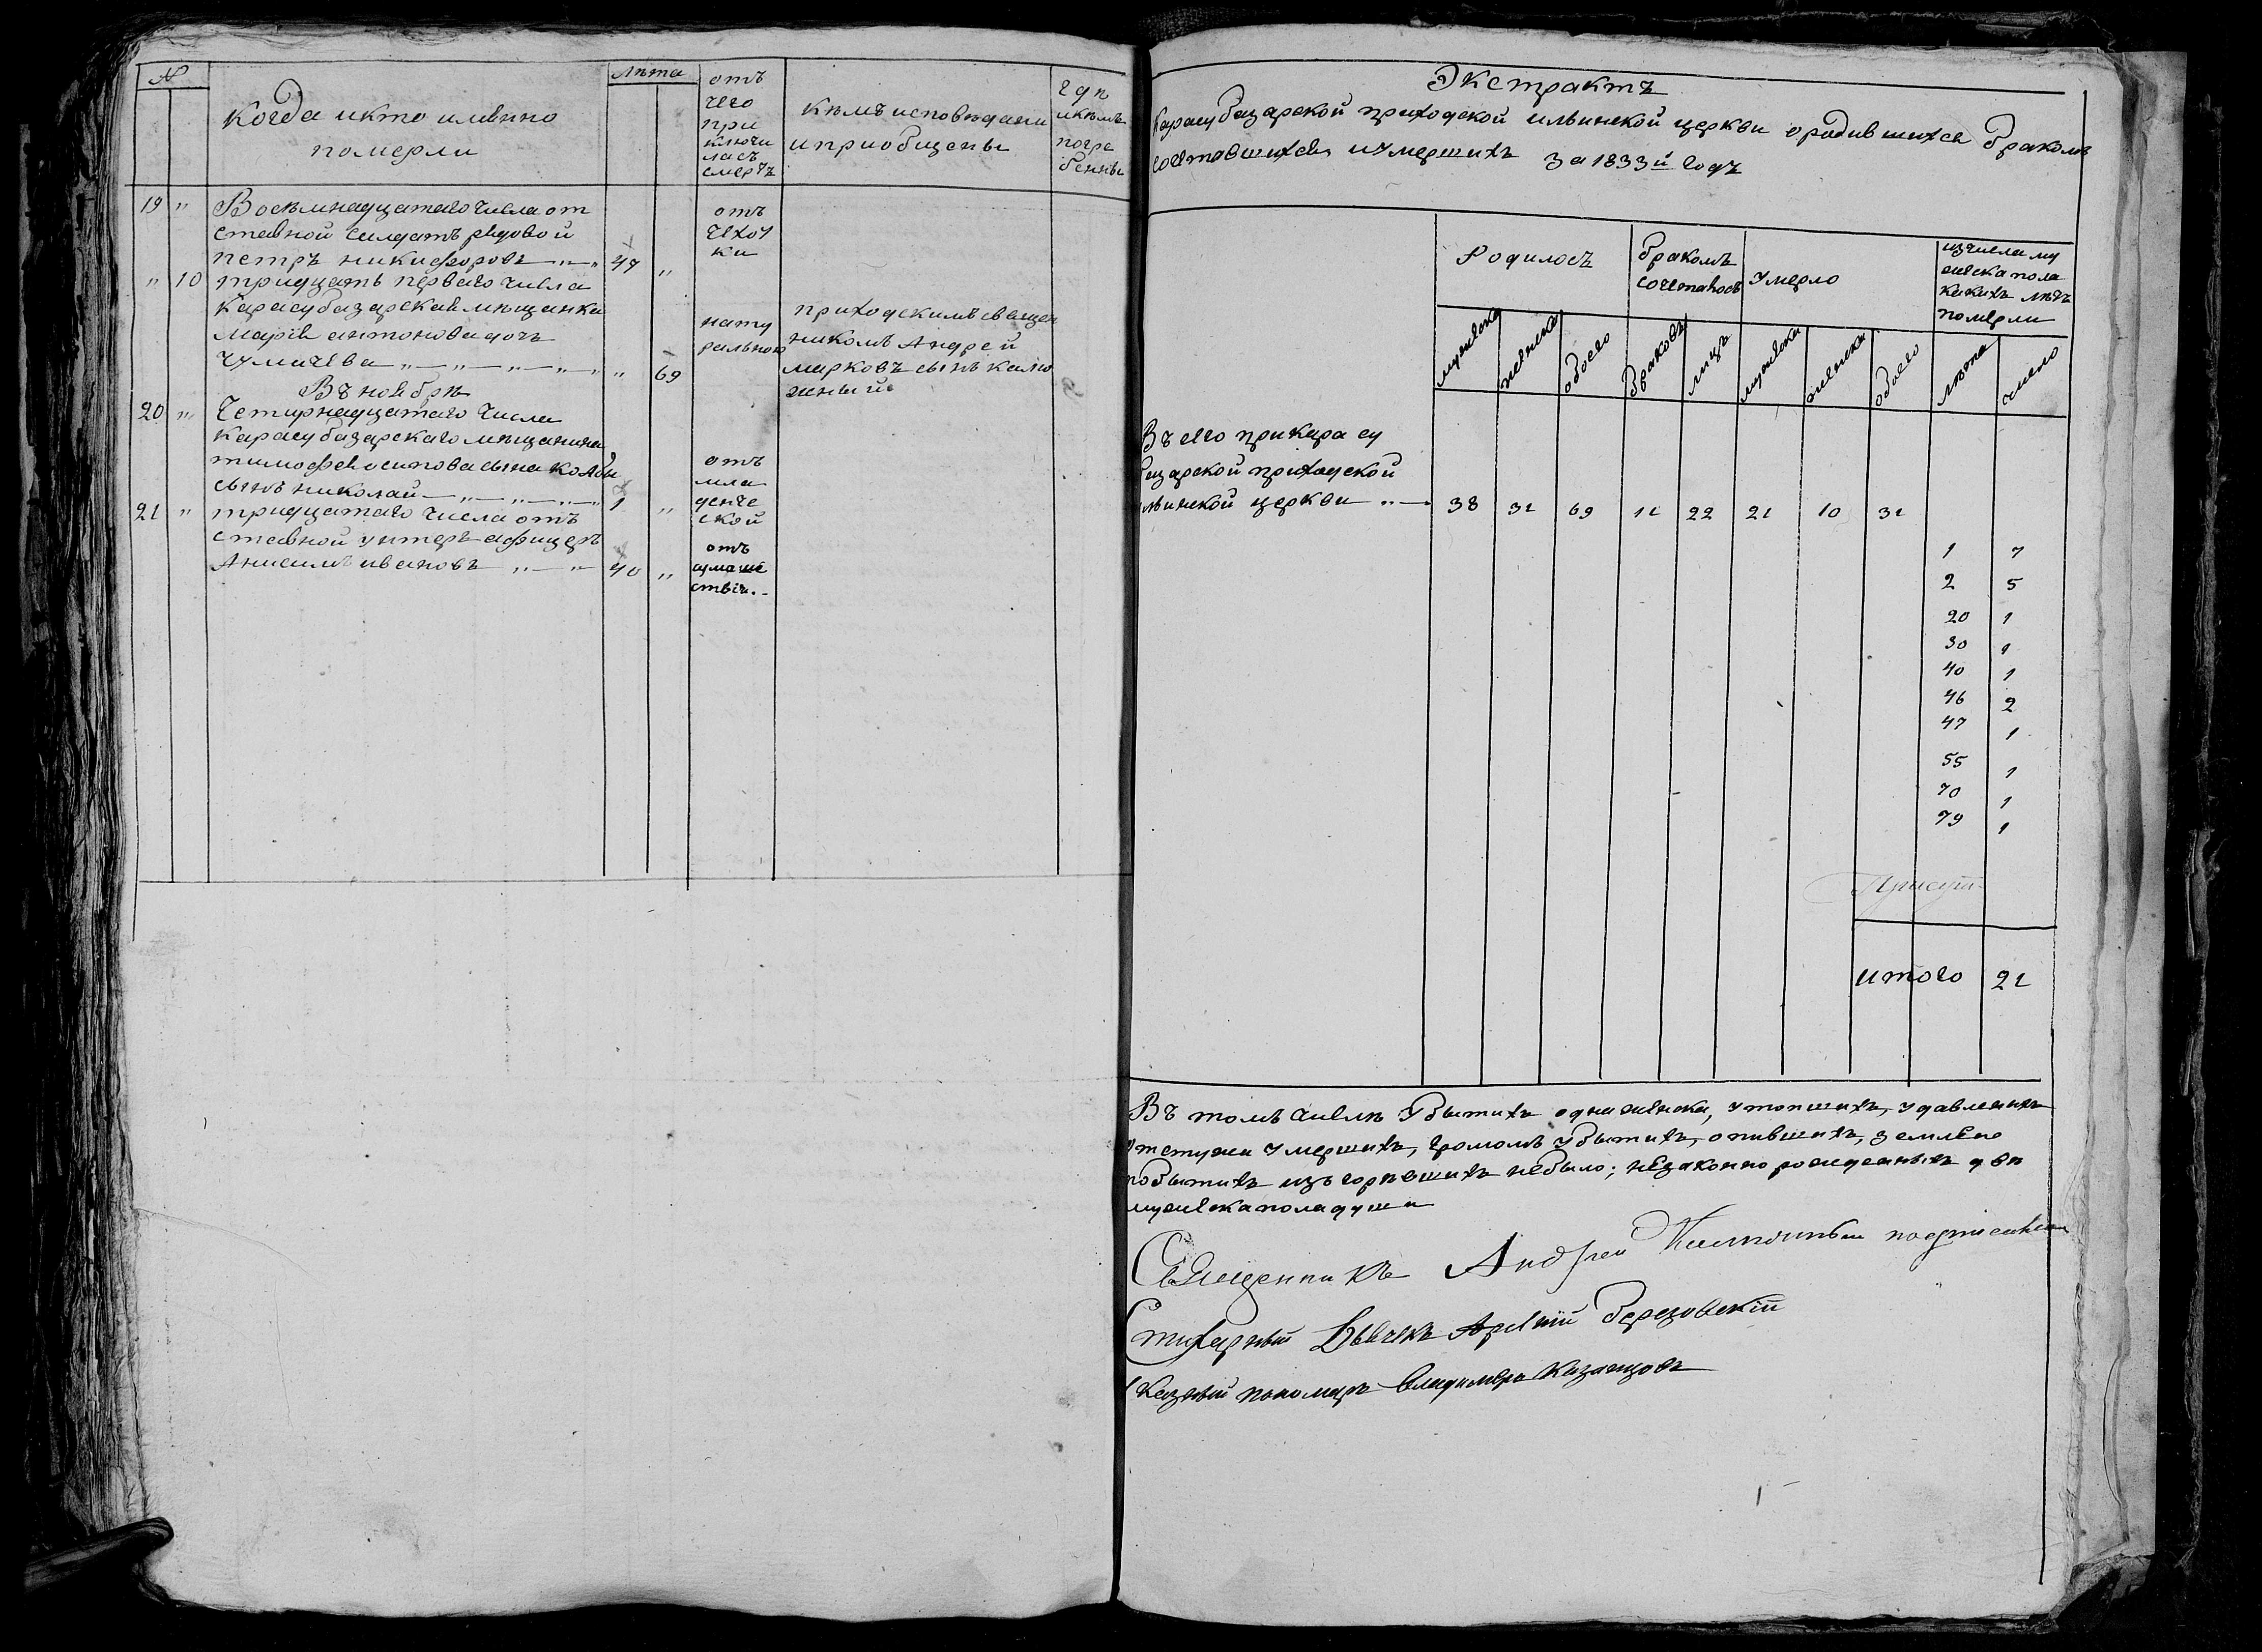 №
Когда икто имянно
померли
лѣта
отъ
чего
при
ключи
лась
смерть
кѣмъ исповѣданы
и приобщены
гдѣ
икѣмъ
погре
бенны
19 " Восѣмнадцатаго числа от
ставной салдатъ рядовой
петръ никифоровъ 47 "
отъ
чехот
ки
" 10 тридцать перваго числа
Карасубазарская мѣщанка
Марія антонова дочь
Чумачева " 69
нату
ральною
приходскимъ священ
никомъ Андрей
марковъ сынъ калю
жный
Въ ноябрѣ
20 " Четырнадцатаго числа
Карасубазарскаго мѣщанина
тимофея осипова сына
сынъ николай 1 "
отъ
мла
денче
ской
21 " тридцатаго числа отъ
ставной унтеръ афицеръ
Анисимъ ивановъ 40 "
отъ
сумаше
ствія
Экстрактъ
Карасубазарской приходской ильинской церкви ородившихся бракомъ
сочетавшихся и умершихъ за 1833й годъ
Родилось
бракомъ
сочеталось
Умерло
изчисла му
жеска пола
какихъ лѣтъ
померли
мужеска
женска
обоего
Браковъ
лицъ
мужеска
женска
обоего
лѣта
число
Въ сего при кара су
базарской приходской
ильинской церкви 38 31 69 11 22 21 10 31
1 7
2 5
20 1
30 1
40 1
46 2
47 1
55 1
70 1
79 1
итого 21
Въ томъ числѣ убытихъ одна женска, утопшихъ, удавленныхъ
отстужи умершихъ, громомъ убытихъ, опившихъ, землею
побытихъ изъ горѣвшихъ небыло; незаконно рожденныхъ двѣ
мужеска пола души
Священникъ Андрей подписался
Стихарный Дьячекъ Арсеній Березовскій
Указный пономарь Владимеръ Казанцовъ